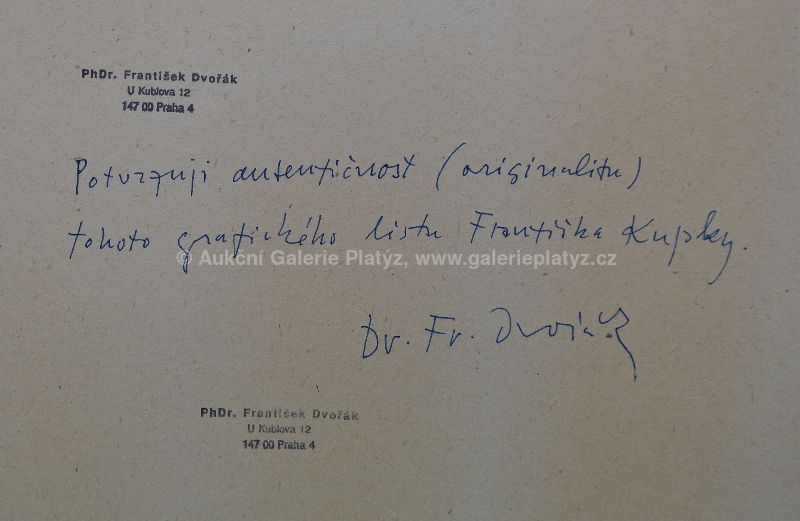 PhDr. František Dvořák
U Kublova 12
147 00 Praha 4
Potvrzuji autentičnost (originalitu)
tohoto grafického listu Františka Kupky.
© Aukční Galerie Platýz, www.galerieplatyz.cz
Dr. Fr. Dvořák
PhDr. František Dvořák
U Kublova 12
147 00 Praha 4